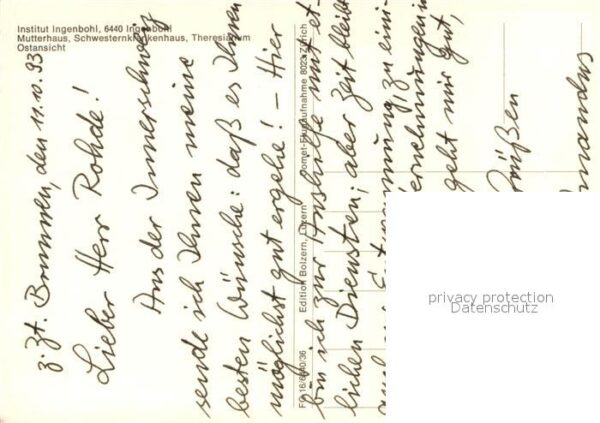 Institut Ingenbohl, 6440 Ingenbohl
Mutterhaus, Schwesternkrankenhaus, Theresianum
Ostansicht
z. Zt. Brunnen, den 11.10.93
Lieber Herr Rohde!
Aus der Innerschweiz
sende ich Ihnen meine
besten Wünsche: daß es Ihnen
möglichst gut ergehe! – Hier
bin ich zur Aushilfe mit et-
lichen Diensten; aber Zeit bleibt
zu eini-
geht mir gut,
Grüßen
FO 16/6440/36 Edition Bolzern, Luzern Comet-Flugaufnahme 8023 Zürich
privacy protection
Datenschutz